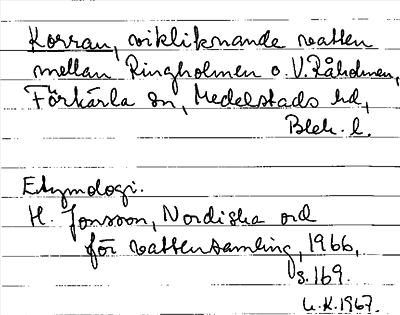 Korran, vikliknande vatten
mellan Ringholmen o. V. Råholmen,
Förkärla sn, Medelstads hd,
Blek. l.
Etymologi.
H. Jonsson, Nordiska ord
för vattensamling, 1966,
s. 169.
U.K. 1967.